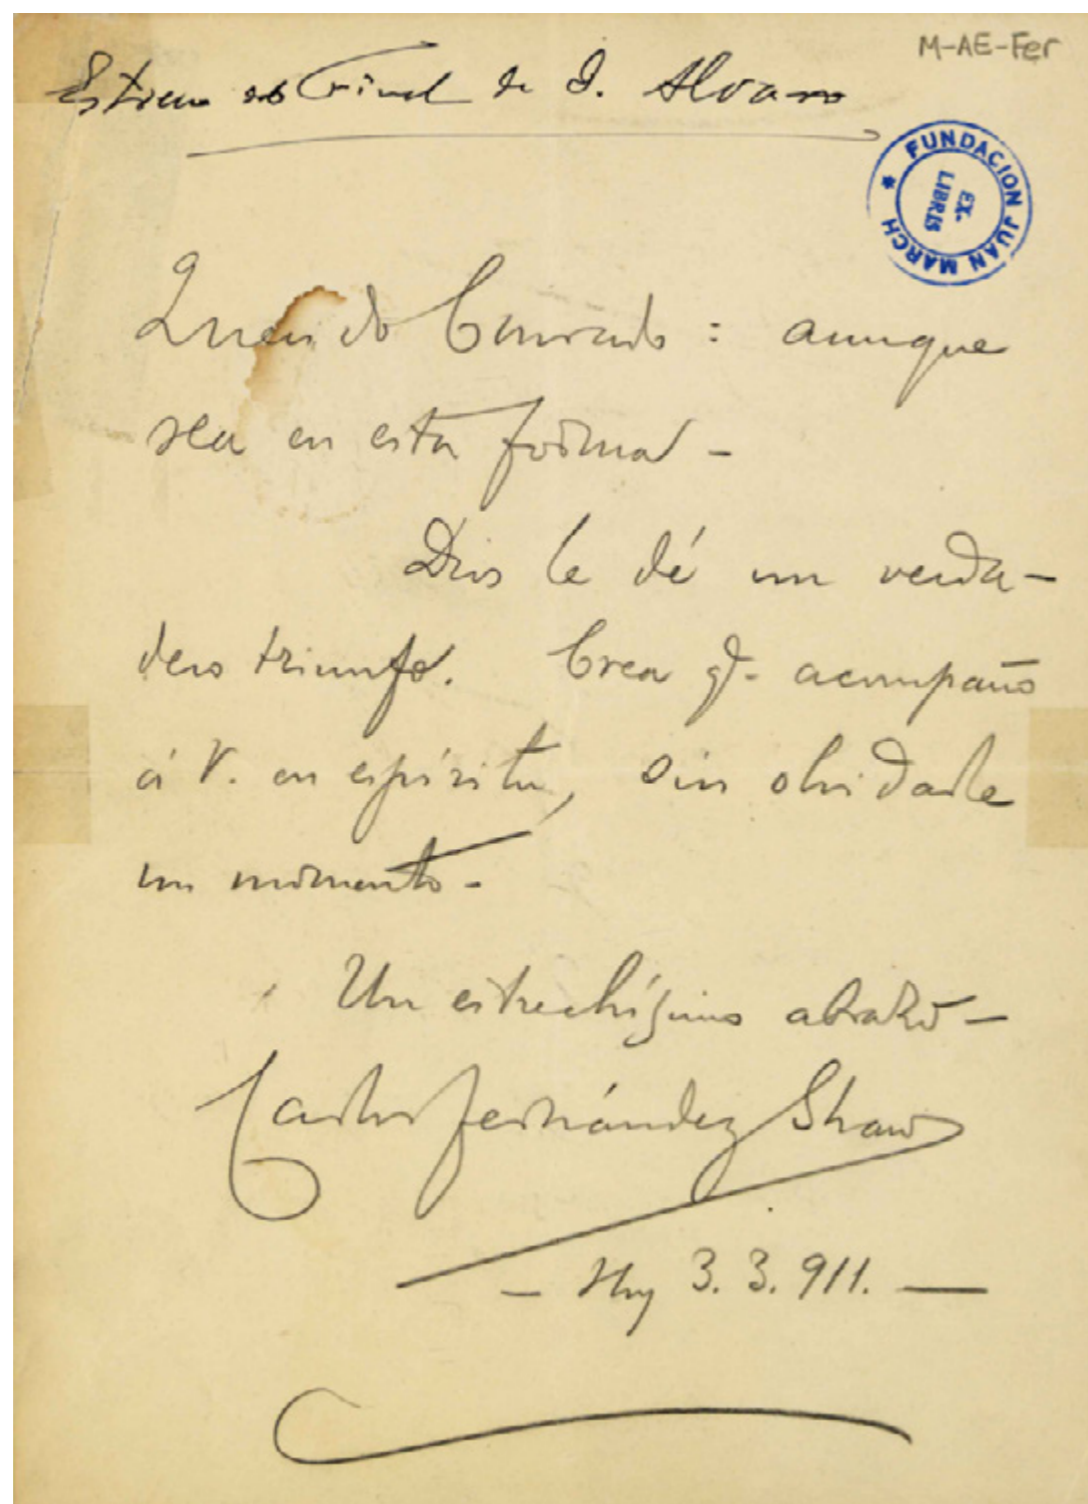 M-AE-Fer
Estreno de Final de D. Alvaro
FUNDACION JUAN MARCH
EX-
LIBRIS
Querido Conrado: aunque
sea en esta forma -
Dios le dé un verda-
dero triunfo. Crea q. acompaño
á V. en espíritu, sin olvidarle
un momento -
Un estrechísimo abrazo -
Carlos Fernández Shaw
- Hoy 3. 3. 911. -